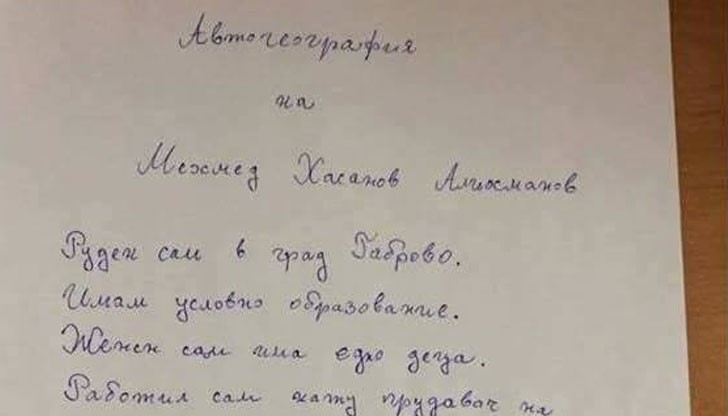 Автогеография
на
Мехмед Хасанов Алиосманов
Руден сам в град Габрово.
Имам условно образование.
Женен сам има едно деца.
Работил сам кату прудавач на